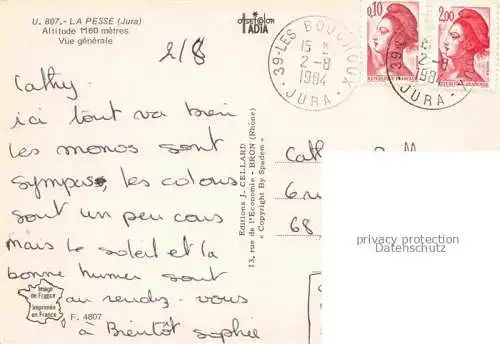 U. 807. - LA PESSE (Jura)
Altitude 1160 mètres
Vue générale
offset color
IADIA
39-LES BOUCHOUX
15 H
2-8
1984
JURA
0,10
REPUBLIQUE FRANÇAISE
2,00
REPUBLIQUE FRANÇAISE
39-
2-8
1984
JURA
2/8
Cathy,
ici tout va bien
les monos sont
sympas, les colons
sont un peu cons
mais le soleil et la
bonne humer sont
au rendez-vous
à Bientôt Sophie
Editions J. CELLARD
13, rue de l'Economie - BRON (Rhône)
« Copyright By Spadem »
Cath
6 ru
68,
privacy protection
Datenschutz
Image
de France
Imprimée
en France
F. 4807